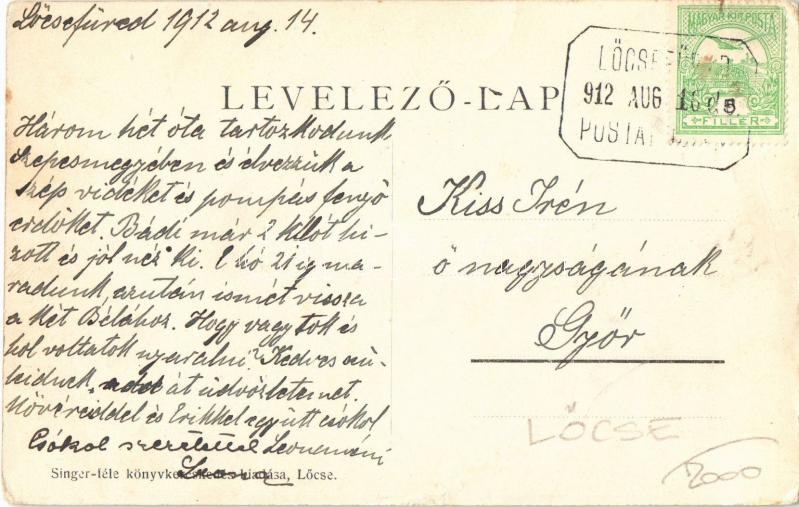 Lőcsefüred 1912 aug. 14.
MAGYAR KIR. POSTA
5
FILLÉR
LŐCSEFÜRED
912 AUG 16
POSTA
LEVELEZŐ-LAP
Három hét óta tartozkodunk
Szepesmegyében és élvezzük a
szép vidéket és pompás fenyő
erdőket. Bádi már 2 kilót hi-
zott és jól néz ki. E hó 21 ig ma-
radunk, azután ismét vissza
a két Bélához. Hogy vagytok és
hol voltatok nyaralni? Kedves szü-
leidnek add át üdvözletemet.
Nővéreiddel és Erikkel együtt csókol
Csókol szeretettel
Kiss Irén
ő nagyságának
Győr
Singer-féle könyvkereskedés kiadása, Lőcse.
LŐCSE
2000